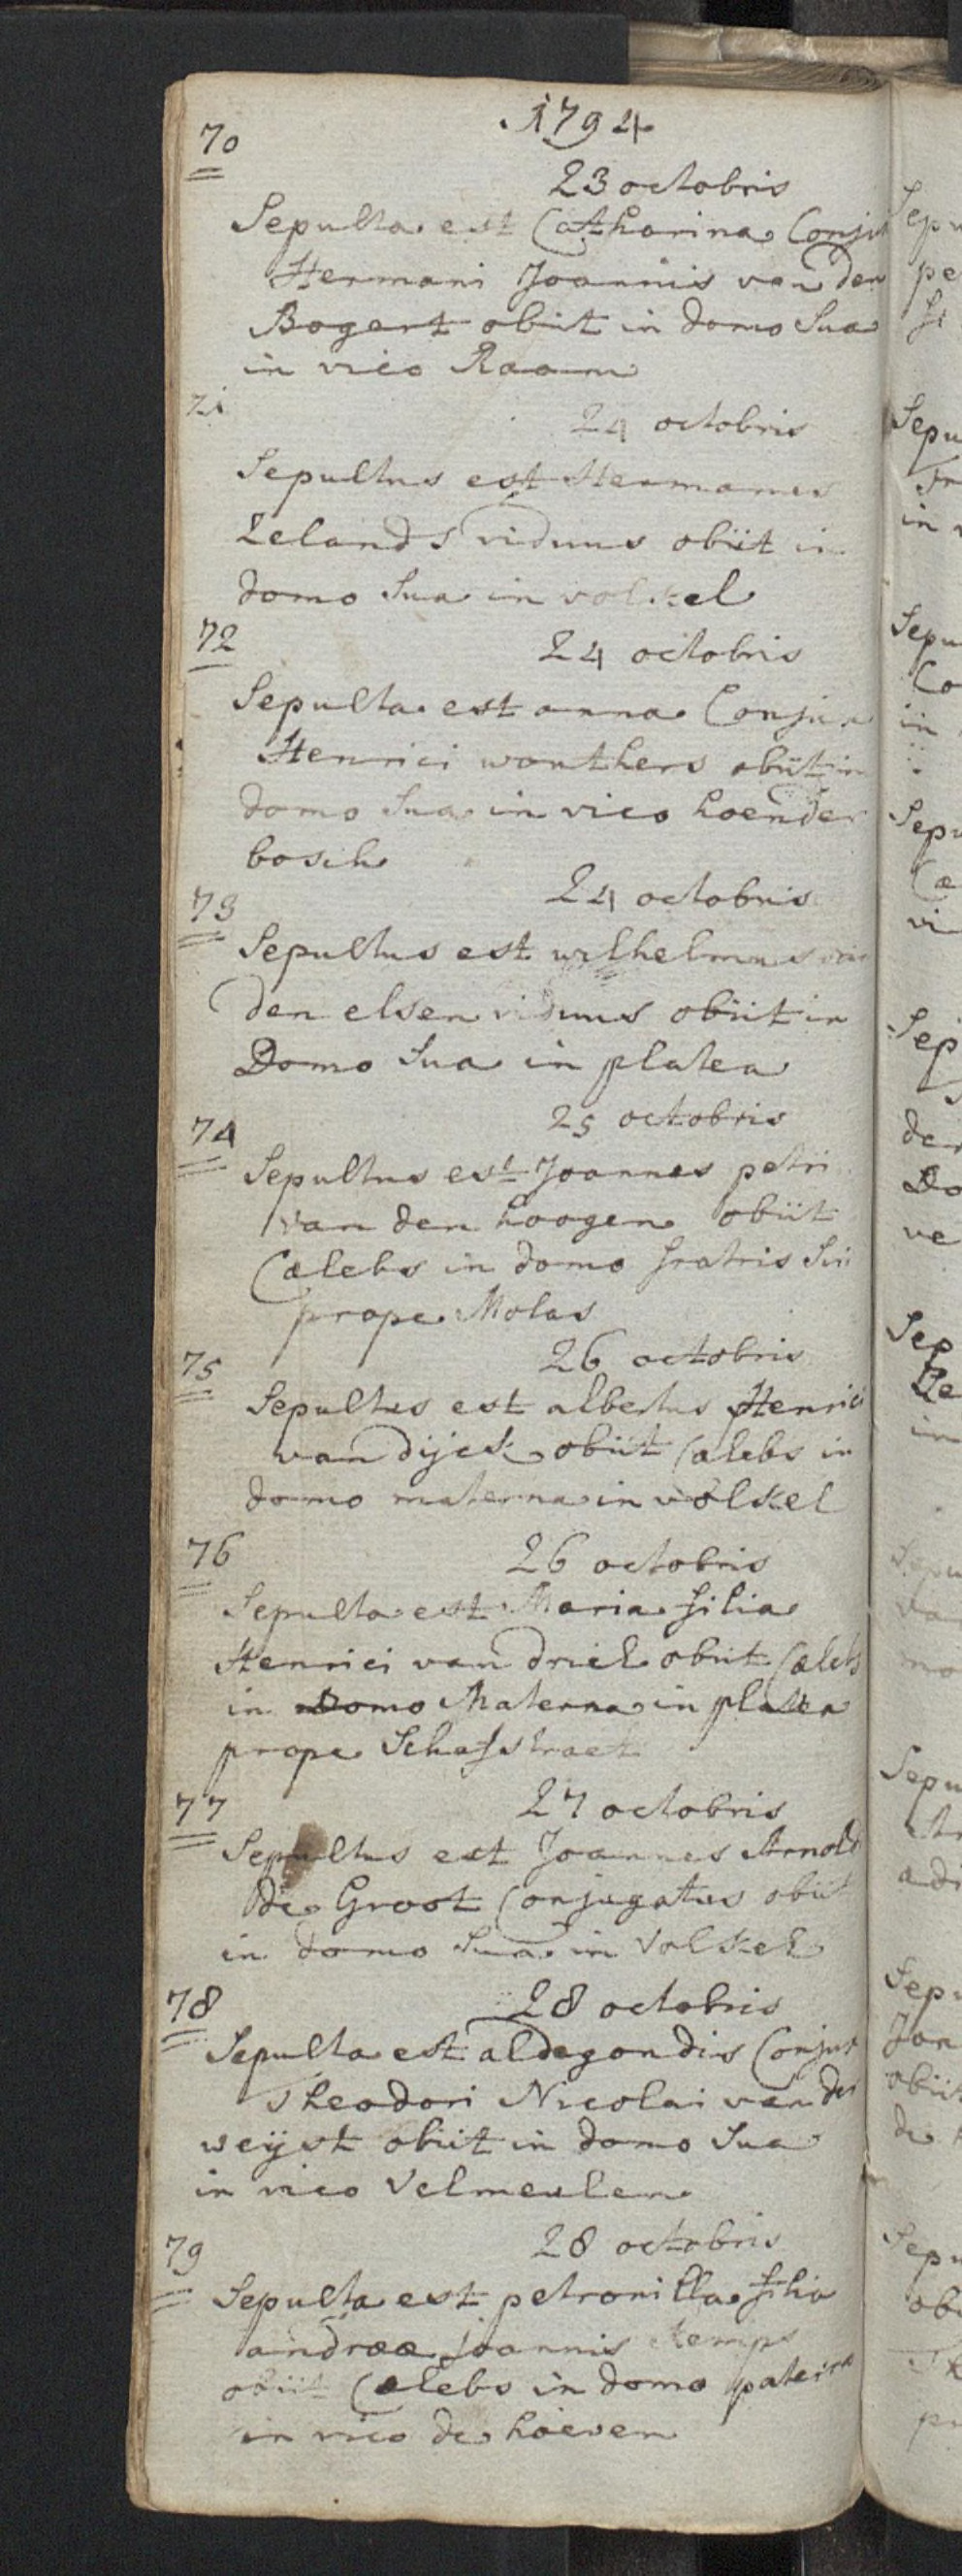 1794
70
23 octobris
Sepulta est Catharina Conju
Hermani Joannis van den
Bogert obiit in domo Sua
in vico Raam
71
24 octobris
Sepultus est Hermanus
Zelands viduus obiit in
domo Sua in volkel
72
24 octobris
Sepulta est anna Conjux
Henrici wouthers obiit in
domo Sua in vico hoender
bosch
73
24 octobris
Sepultus est wilhelmus van
den elsen viduus obiit in
Domo Sua in platea
74
25 octobris
Sepultus est Joannes petri
van den hoogen obiit
Cælebs in domo fratris Sui
prope Molas
75
26 octobris
Sepultus est albertus Henrici
van dijck obiit Cælebs in
domo materna in volkel
76
26 octobris
Sepulta est Maria filia
Henrici van driel obiit Cælebs
in Domo Materna in platea
prope Schafstraet
77
27 octobris
Sepultus est Joannes Arnold
de Groot Conjugatus obiit
in domo Sua in Volkel
78
28 octobris
Sepulta est aldegondis Conjux
Theodori Nicolai van der
weijst obiit in domo Sua
in vico Velmeulen
79
28 octobris
Sepulta est petronilla filia
andreæ joannis kemps
obiit Cælebs in domo paterna
in vico de hoeven